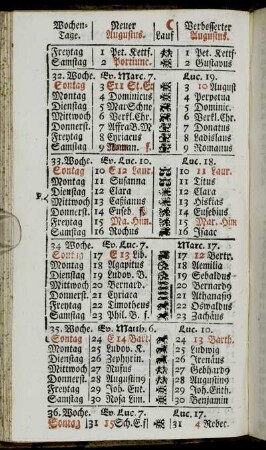 Wochen- Neuer Verbesserter
Tage. Augustus. Lauf Augustus.
Freytag 1 Pet. Kettf. 1 Pet. Kettf.
Samstag 2 Portiunc. 2 Gustavus
32. Woche. Ev. Marc. 7. Luc. 19.
Sontag 3 E11 St. 3 10 August
Montag 4 Dominicus 4 Perpetua
Dienstag 5 Mar. Schn. 5 Dominic.
Mittwoch 6 Verkl. Chr. 6 Verkl. Chr.
Donnerst. 7 Affra B. M 7 Donatus
Freytag 8 Cyriacus 8 Ladislaus
Samstag 9 Roman. f. 9 Romanus
33. Woche. Ev. Luc. 10. Luc. 18.
Sontag 10 E12 Laur. 10 11 Laur.
Montag 11 Susanna 11 Titus
Dienstag 12 Clara 12 Clara
Mittwoch 13 Caßianus 13 Hiskias
Donnerst. 14 Euseb. f. 14 Eusebius
Freytag 15 Ma. Him. 15 Mar. Him
Samstag 16 Rochus 16 Isaac
34 Woche Ev. Luc. 7. Marc. 17.
Sontag 17 E 13 Lib. 17 12 Bertr.
Montag 18 Agapitus 18 Aemilia
Dienstag 19 Ludov. B. 19 Sebaldus
Mittwoch 20 Bernard. 20 Bernardg
Donnerst. 21 Cyriaca 21 Athanasg
Freytag 22 Timotheus 22 Oswaldus
Samstag 23 Phil. B. f. 23 Zachäus
35. Woche. Ev. Matth. 6. Luc. 10.
Sontag 24 E 14 Bart. 24 13 Barth.
Montag 25 Ludov. K. 25 Ludwig
Dienstag 26 Zephyrin. 26 Irenäus
Mittwoch 27 Rufus 27 Gebhardg
Donnerst. 28 Augusting 28 Augusting
Freytag 29 Joh. Enth. 29 Joh. Enth.
Samstag 30 Rosa Lim. 30 Benjamin
36. Woche. Ev. Luc. 7. Luc. 17.
Sontag 31 15 Sch. E. f 31 4 Rebec.